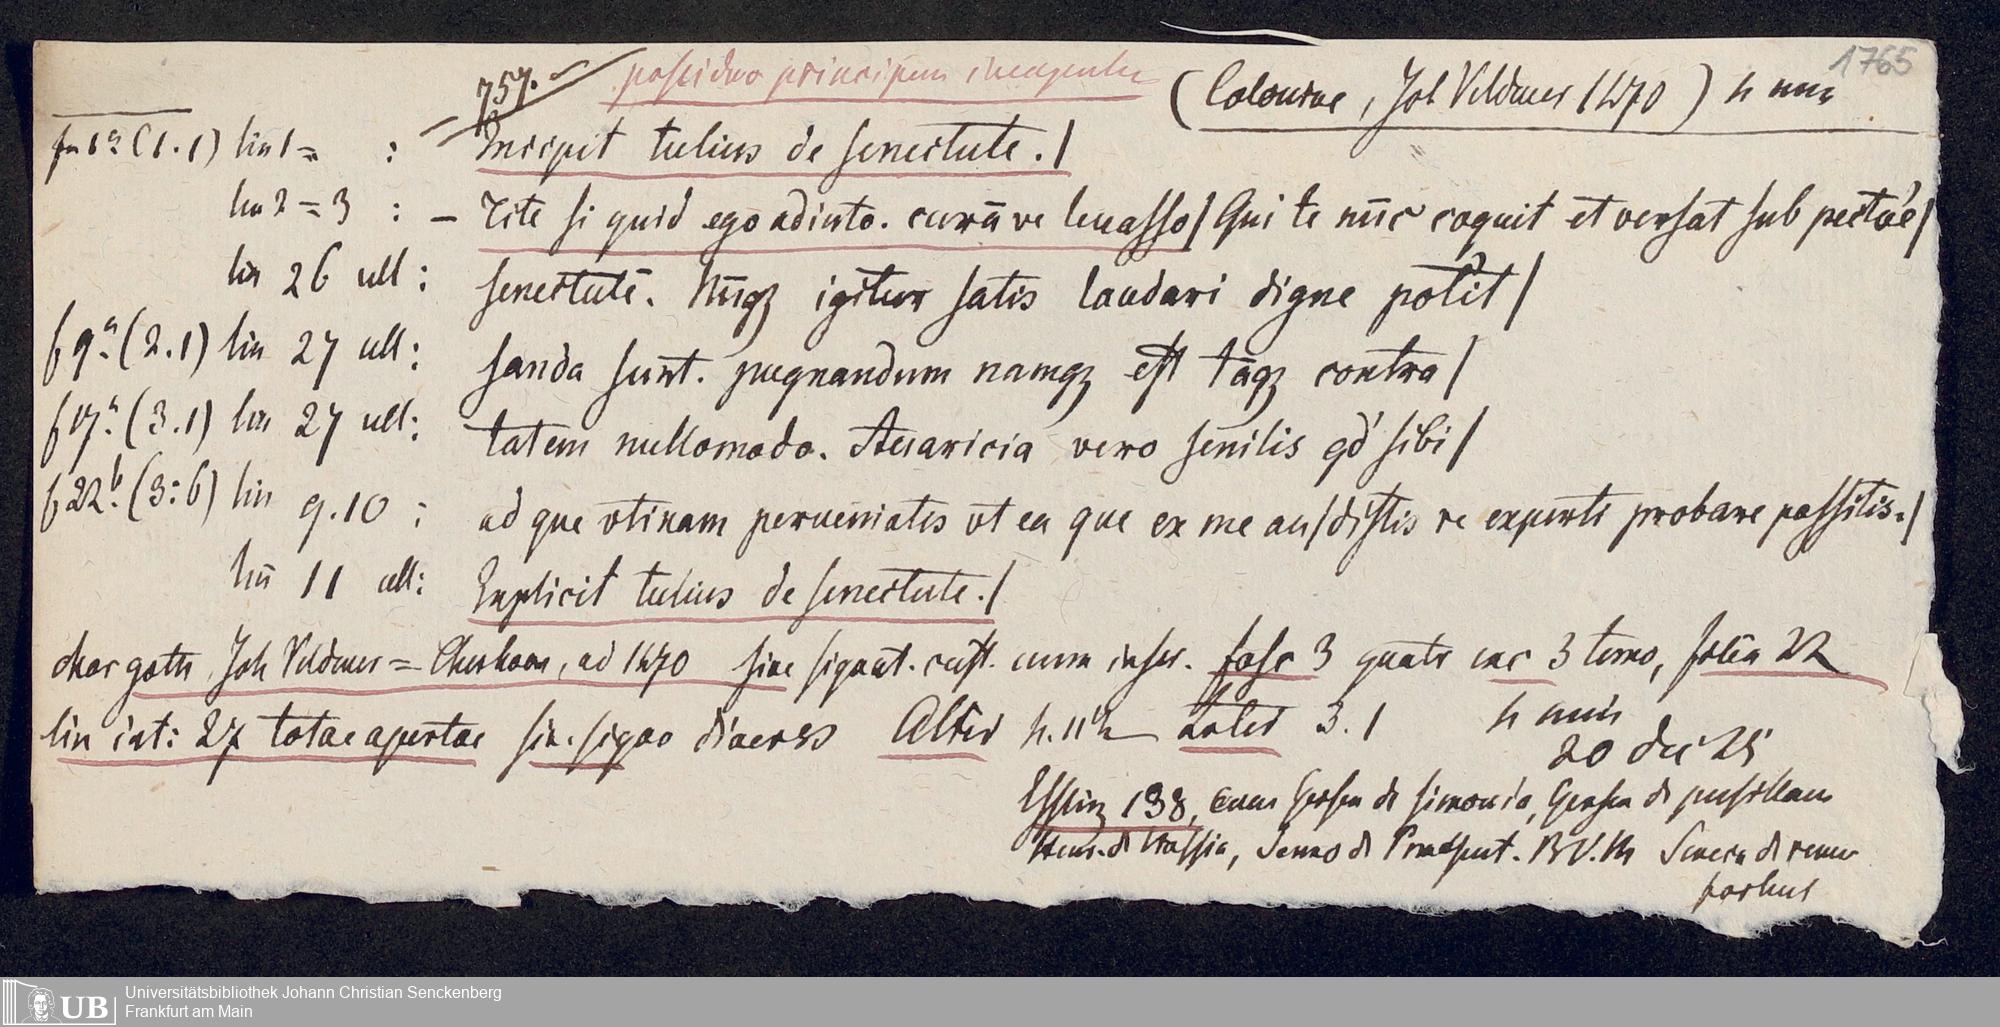 1765
757. post duo principum incogniter (Coloniae, Joh Veldmer 1470) h num
fu 1a (1.1) lin 1 = : Incipit tulius de senectute . /
lin 2 = 3 : – Tite si quid ego adiuto. curā ve leuasso / Qui te nūc coquit et versat sub pectore /
lin 26 ult : senectutē. Nūqz igitur satis laudari digne potit /
f 9.a (2.1) lin 27 ult : sanda sunt. pugnandum namqz est tāqz contra /
f 17.a (3.1) lin 27 ult : tatem nullomodo. Auaricia vero senilis qd sibi /
f 22.b (3:6) lin 9.10 : ad que vtinam perueniatis vt ea que ex me au/distis re experti probare possitis. /
lin 11 ult : Explicit tulius de senectute. /
char goth Joh Veldmer = ad 1470 sine signat. cust. cum inser. fasc 3 quatr inc 3 terno, folia 22
lin int: 27 totae apertae sin. signo diverss Alter h. 3.1 h num
20 dec 25
Essling 138, cum Gerson de simonia, Gerson de pusillan
Henr. de Hassia, Sermo de Praesent. B V. M Seneca de reme
fortuit
Universitätsbibliothek Johann Christian Senckenberg
UB Frankfurt am Main